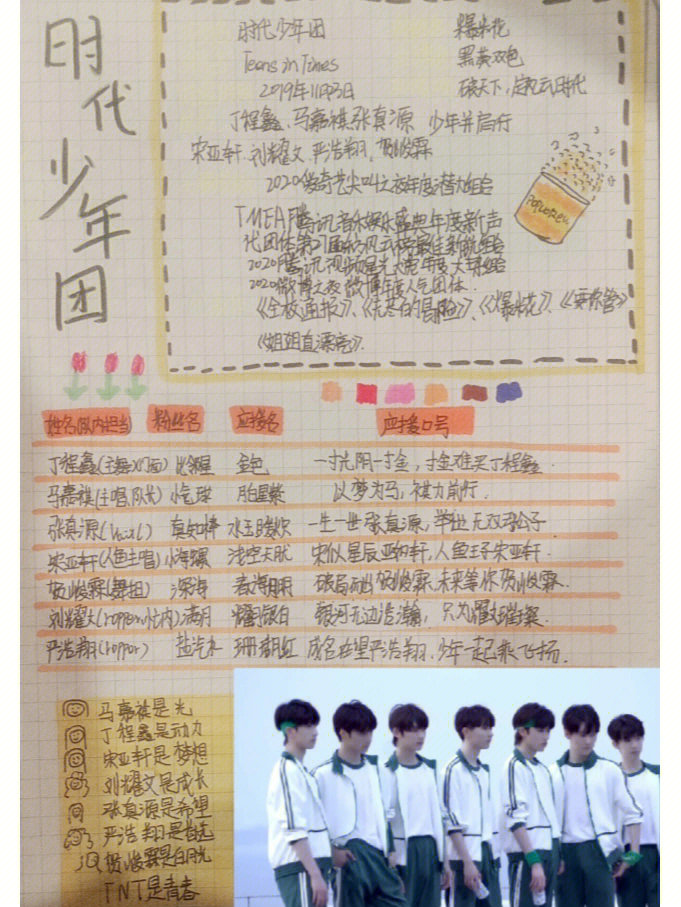 时代少年团
时代少年团 爆米花
Teens in Times 黑黄双色
2019年11月23日 破天下,定乾云时代
丁程鑫、马嘉祺、张真源 少年并肩行
宋亚轩、刘耀文、严浩翔、贺峻霖
2020爱奇艺尖叫之夜年度潜力组合
TMEA腾讯音乐娱乐盛典年度新声
代团体第27届东方风云榜最佳新锐组合
2020腾讯视频星光大赏年度大势组合
2020微博之夜微博年度人气团体
《全校通报》、《无尽的冒险》、《爆米花》、《要你管》
《姐姐真漂亮》.
Popcorn
姓名(队内担当) 粉丝名 应援名 应援口号
丁程鑫(主舞×门面) 比邻星 金色 一寸光阴一寸金,寸金难买丁程鑫.
马嘉祺(主唱,队长) 小气球 以梦为马,祺力前行.
张真源(Vocal) 真知棒 水玉 一生一世张真源,举世无双公子
宋亚轩(人鱼主唱) 小海螺 浅空天肽 宋似星辰亚纳轩,人鱼王子宋亚轩.
贺峻霖(舞担) 深海 春海 破局而出贺峻霖,未来等你贺峻霖.
刘耀文(rapper忙内) 满月 耀月银白 银河无边浩瀚,只为耀文璀璨
严浩翔(rapper) 盐汽水 珊瑚红 成名在望严浩翔,少年一起乘飞扬.
马嘉祺是光
丁程鑫是动力
宋亚轩是梦想
刘耀文是成长
张真源是希望
严浩翔是首选
贺峻霖是白月光
TNT是青春